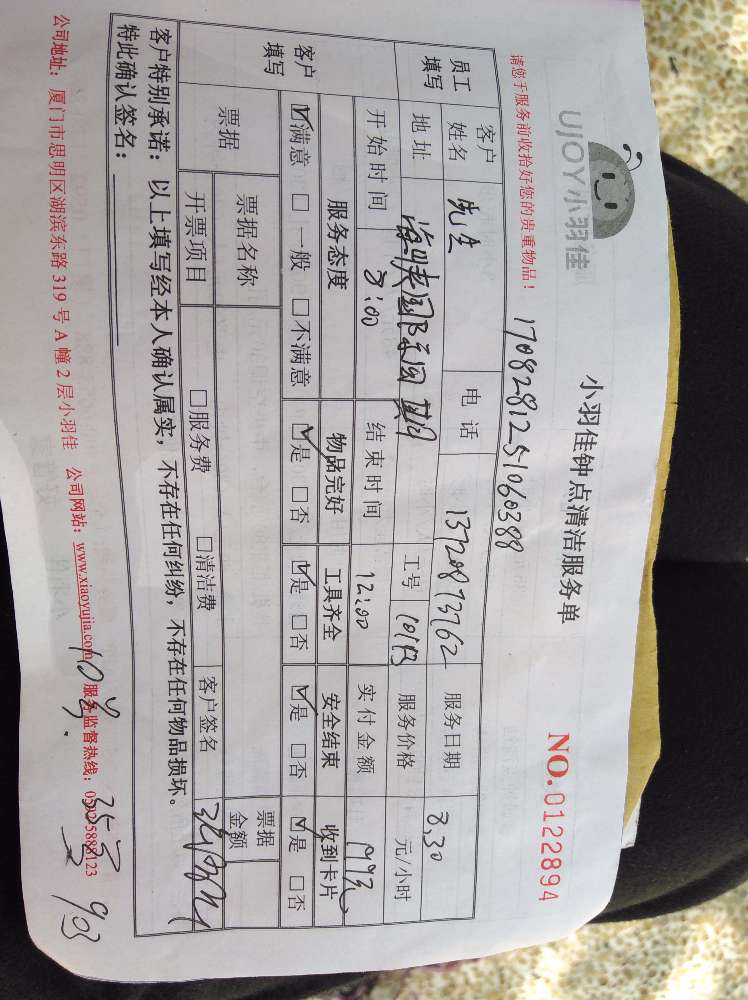 UJOY小羽佳
小羽佳钟点清洁服务单
NO.0122894
请您于服务前收拾好您的贵重物品！
1708281251060388
员工填写
客户姓名 先生 电话 13720873762 服务日期 8.30
地址 工号 服务价格 元/小时
开始时间 8:00 结束时间 12:00 实付金额
客户填写
服务态度 物品完好 工具齐全 安全结束 收到卡片
☑满意 □一般 □不满意 ☑是 □否 ☑是 □否 ☑是 □否 ☑是 □否
票据 票据名称 票据金额
开票项目 □服务费 □清洁费 客户签名
客户特别承诺：以上填写经本人确认属实，不存在任何纠纷，不存在任何物品损坏。
特此确认签名：
公司地址：厦门市思明区湖滨东路 319 号 A 幢 2 层小羽佳 公司网站：www.xiaoyujia.com 服务监督热线：0592-5888123